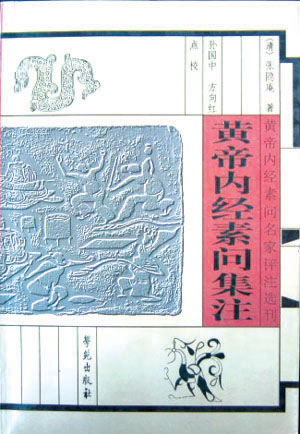 (清)张隐庵 著
孙国中 方向红
点校
黄帝内经素问名家评注选刊
黄帝内经素问集注
学苑出版社